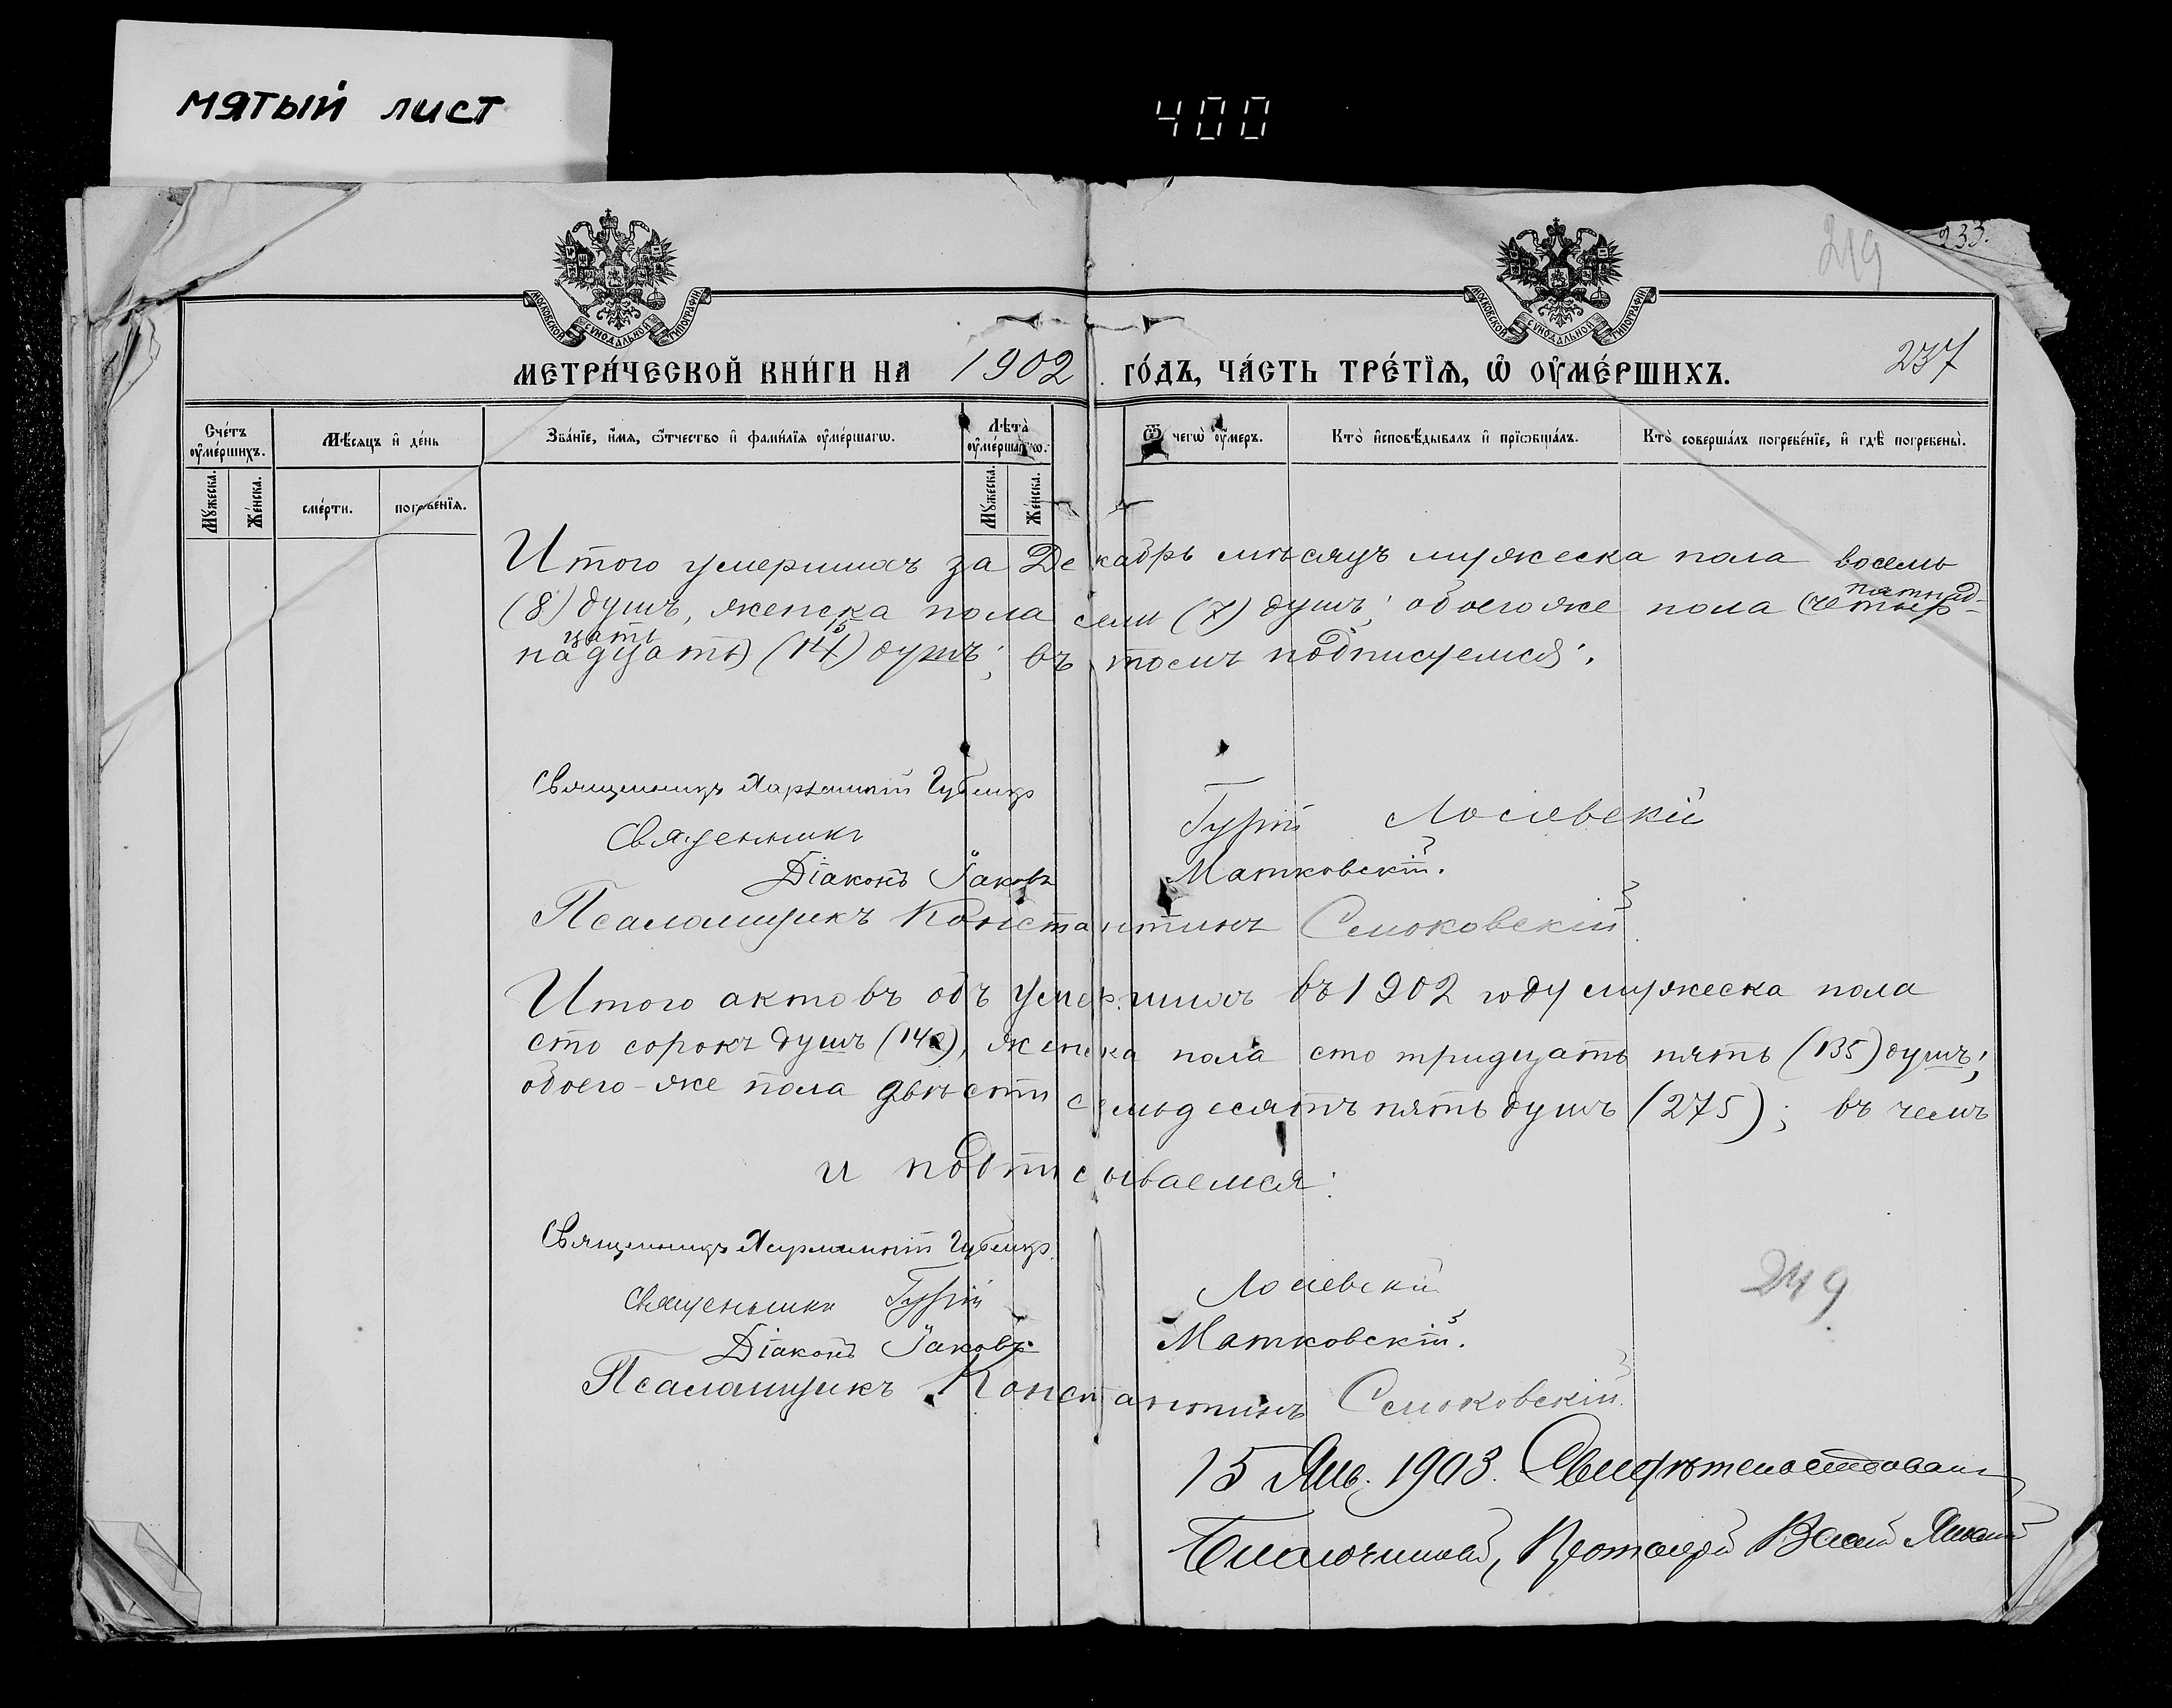 мятый лист
400
233.
219
МОСКОВСКОЙ СУНОДАЛЬНОЙ ТИПОГРАФІИ
МОСКОВСКОЙ СУНОДАЛЬНОЙ ТИПОГРАФІИ
МЕТРИ́ЧЕСКОЙ КНИ́ГИ НА 1902 ГО́ДЪ, ЧА́СТЬ ТРЕ́ТЇѦ, Ѡ҆ ОУ҆МЕ́РШИХЪ. 237
Сче́тъ оу҆ме́ршихъ.
Мѣ́сѧцъ и҆ де́нь
Зва́нїе, и҆́мѧ, ѻ҆́тчество и҆ фами́лїѧ оу҆ме́ршагѡ.
Лѣ̑та̀ оу҆ме́ршагѡ.
Ѿ чегѡ̀ оу҆́меръ.
Кто̀ и҆сповѣ́дывалъ и҆ прїѡбща́лъ.
Кто̀ соверша́лъ погребе́нїе, и҆ гдѣ̀ погребены̀.
Мꙋ́жеска. Же́нска. сме́рти. погребе́нїѧ. Мꙋ́жеска. Же́нска.
Итого умершихъ за Декабрь мѣсяцъ мужеска пола восемь
(8) душъ, женска пола семь (7) душъ; обоего же пола (четыр-
пятнад-
цать 15
надцать) (14) душъ; въ томъ подписуемся:
Священникъ Харлампій
Священникъ Гурій Лосіевскій
Діаконъ Іаковъ Матковскій.
Псаломщикъ Константинъ Смоковскій
Итого актовъ объ умершихъ въ 1902 году мужеска пола
сто сорокъ душъ (140), женска пола сто тридцать пять (135) душъ;
обоего-же пола двѣсти семьдесятъ пять душъ (275); въ чемъ
и подписываемся:
Священникъ Харлампій
Священникъ Гурій Лосіевскій
Діаконъ Іаковъ Матковскій.
Псаломщикъ Константинъ Смоковскій
249
15 Янв. 1903. Свидѣтельствовалъ
Благочинный, Протоіерей